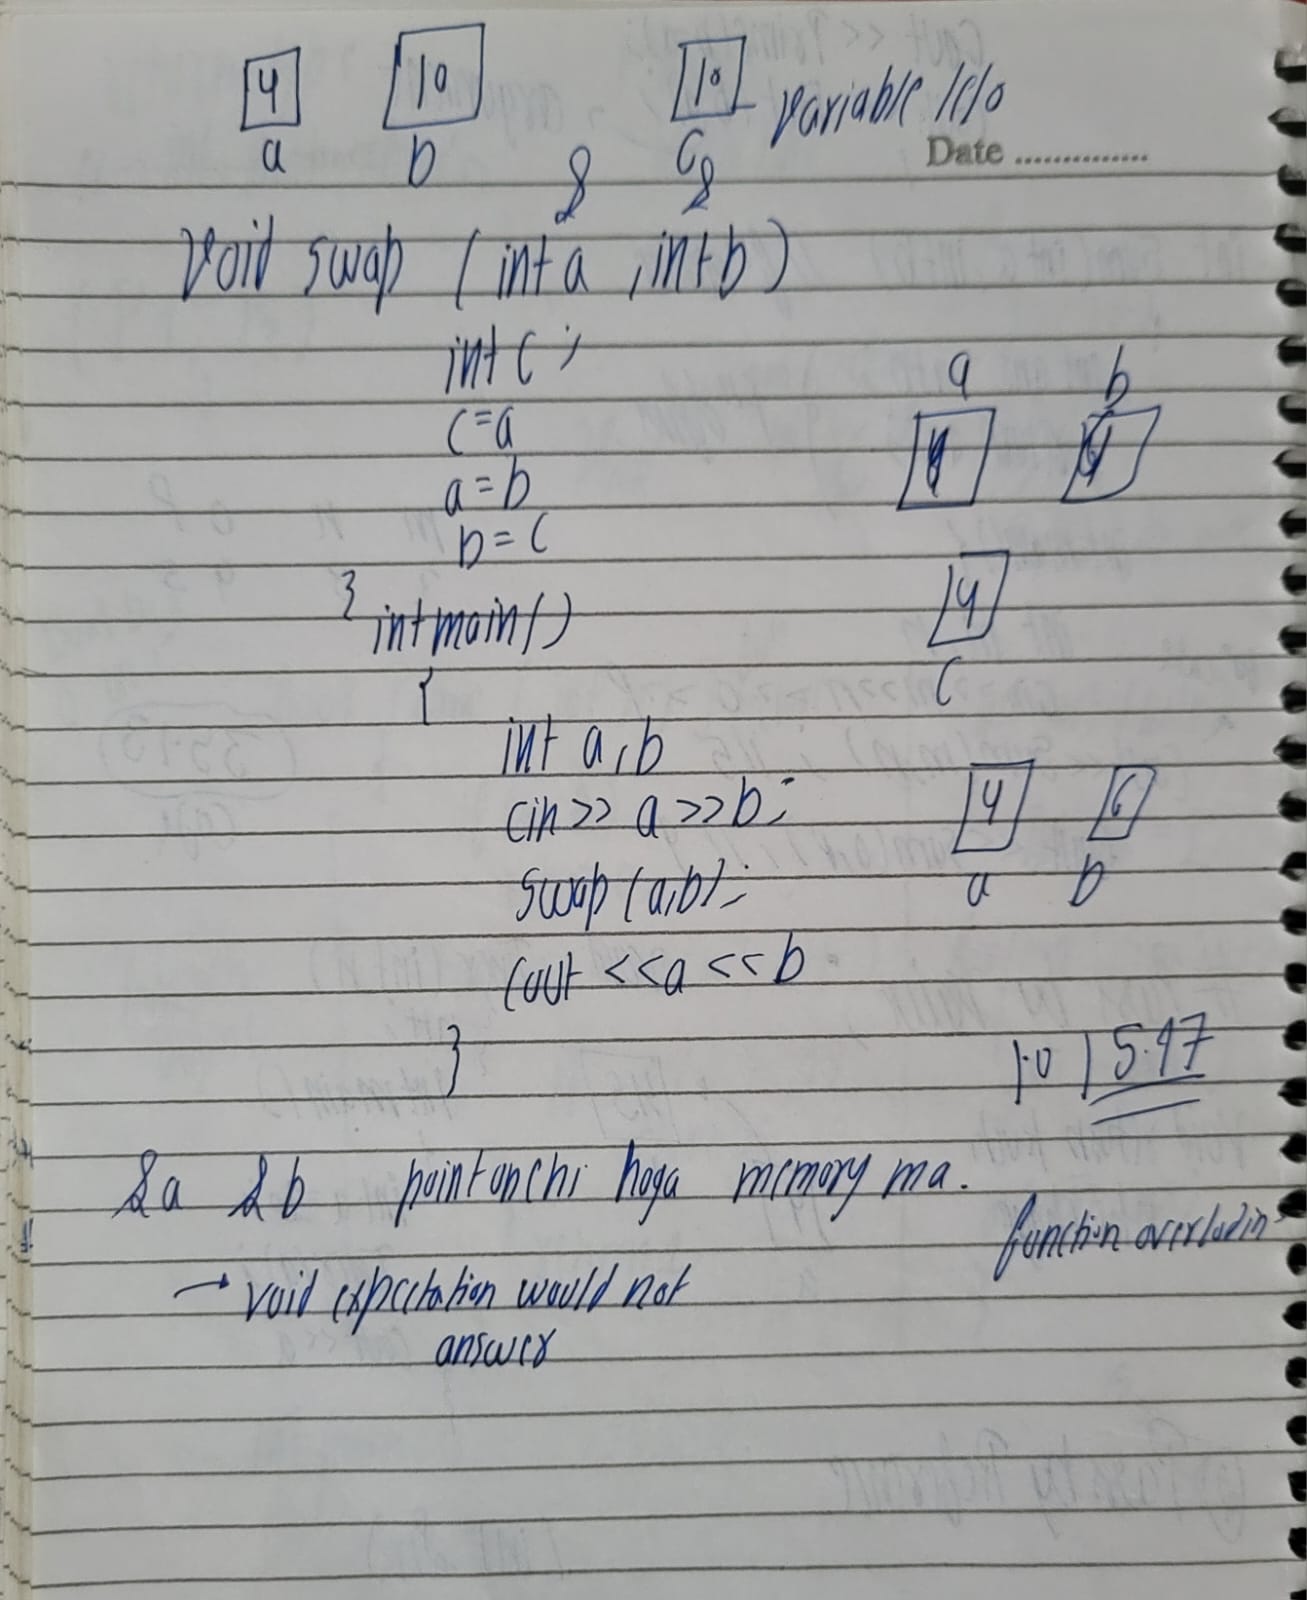 4 10 10 variable le/o
a b c
Date ..............
& &
void swap (int a , int b)
int c ;
c = a
a = b
b = c
a b
}
int main()
4
c
{
int a, b
cin >> a >> b;
4 6
a b
swap (a,b);
cout << a << b
}
1.0 | 5.97
&a &b point onchi hoga memory ma.
function overlodin
→ void expectation would not
answer